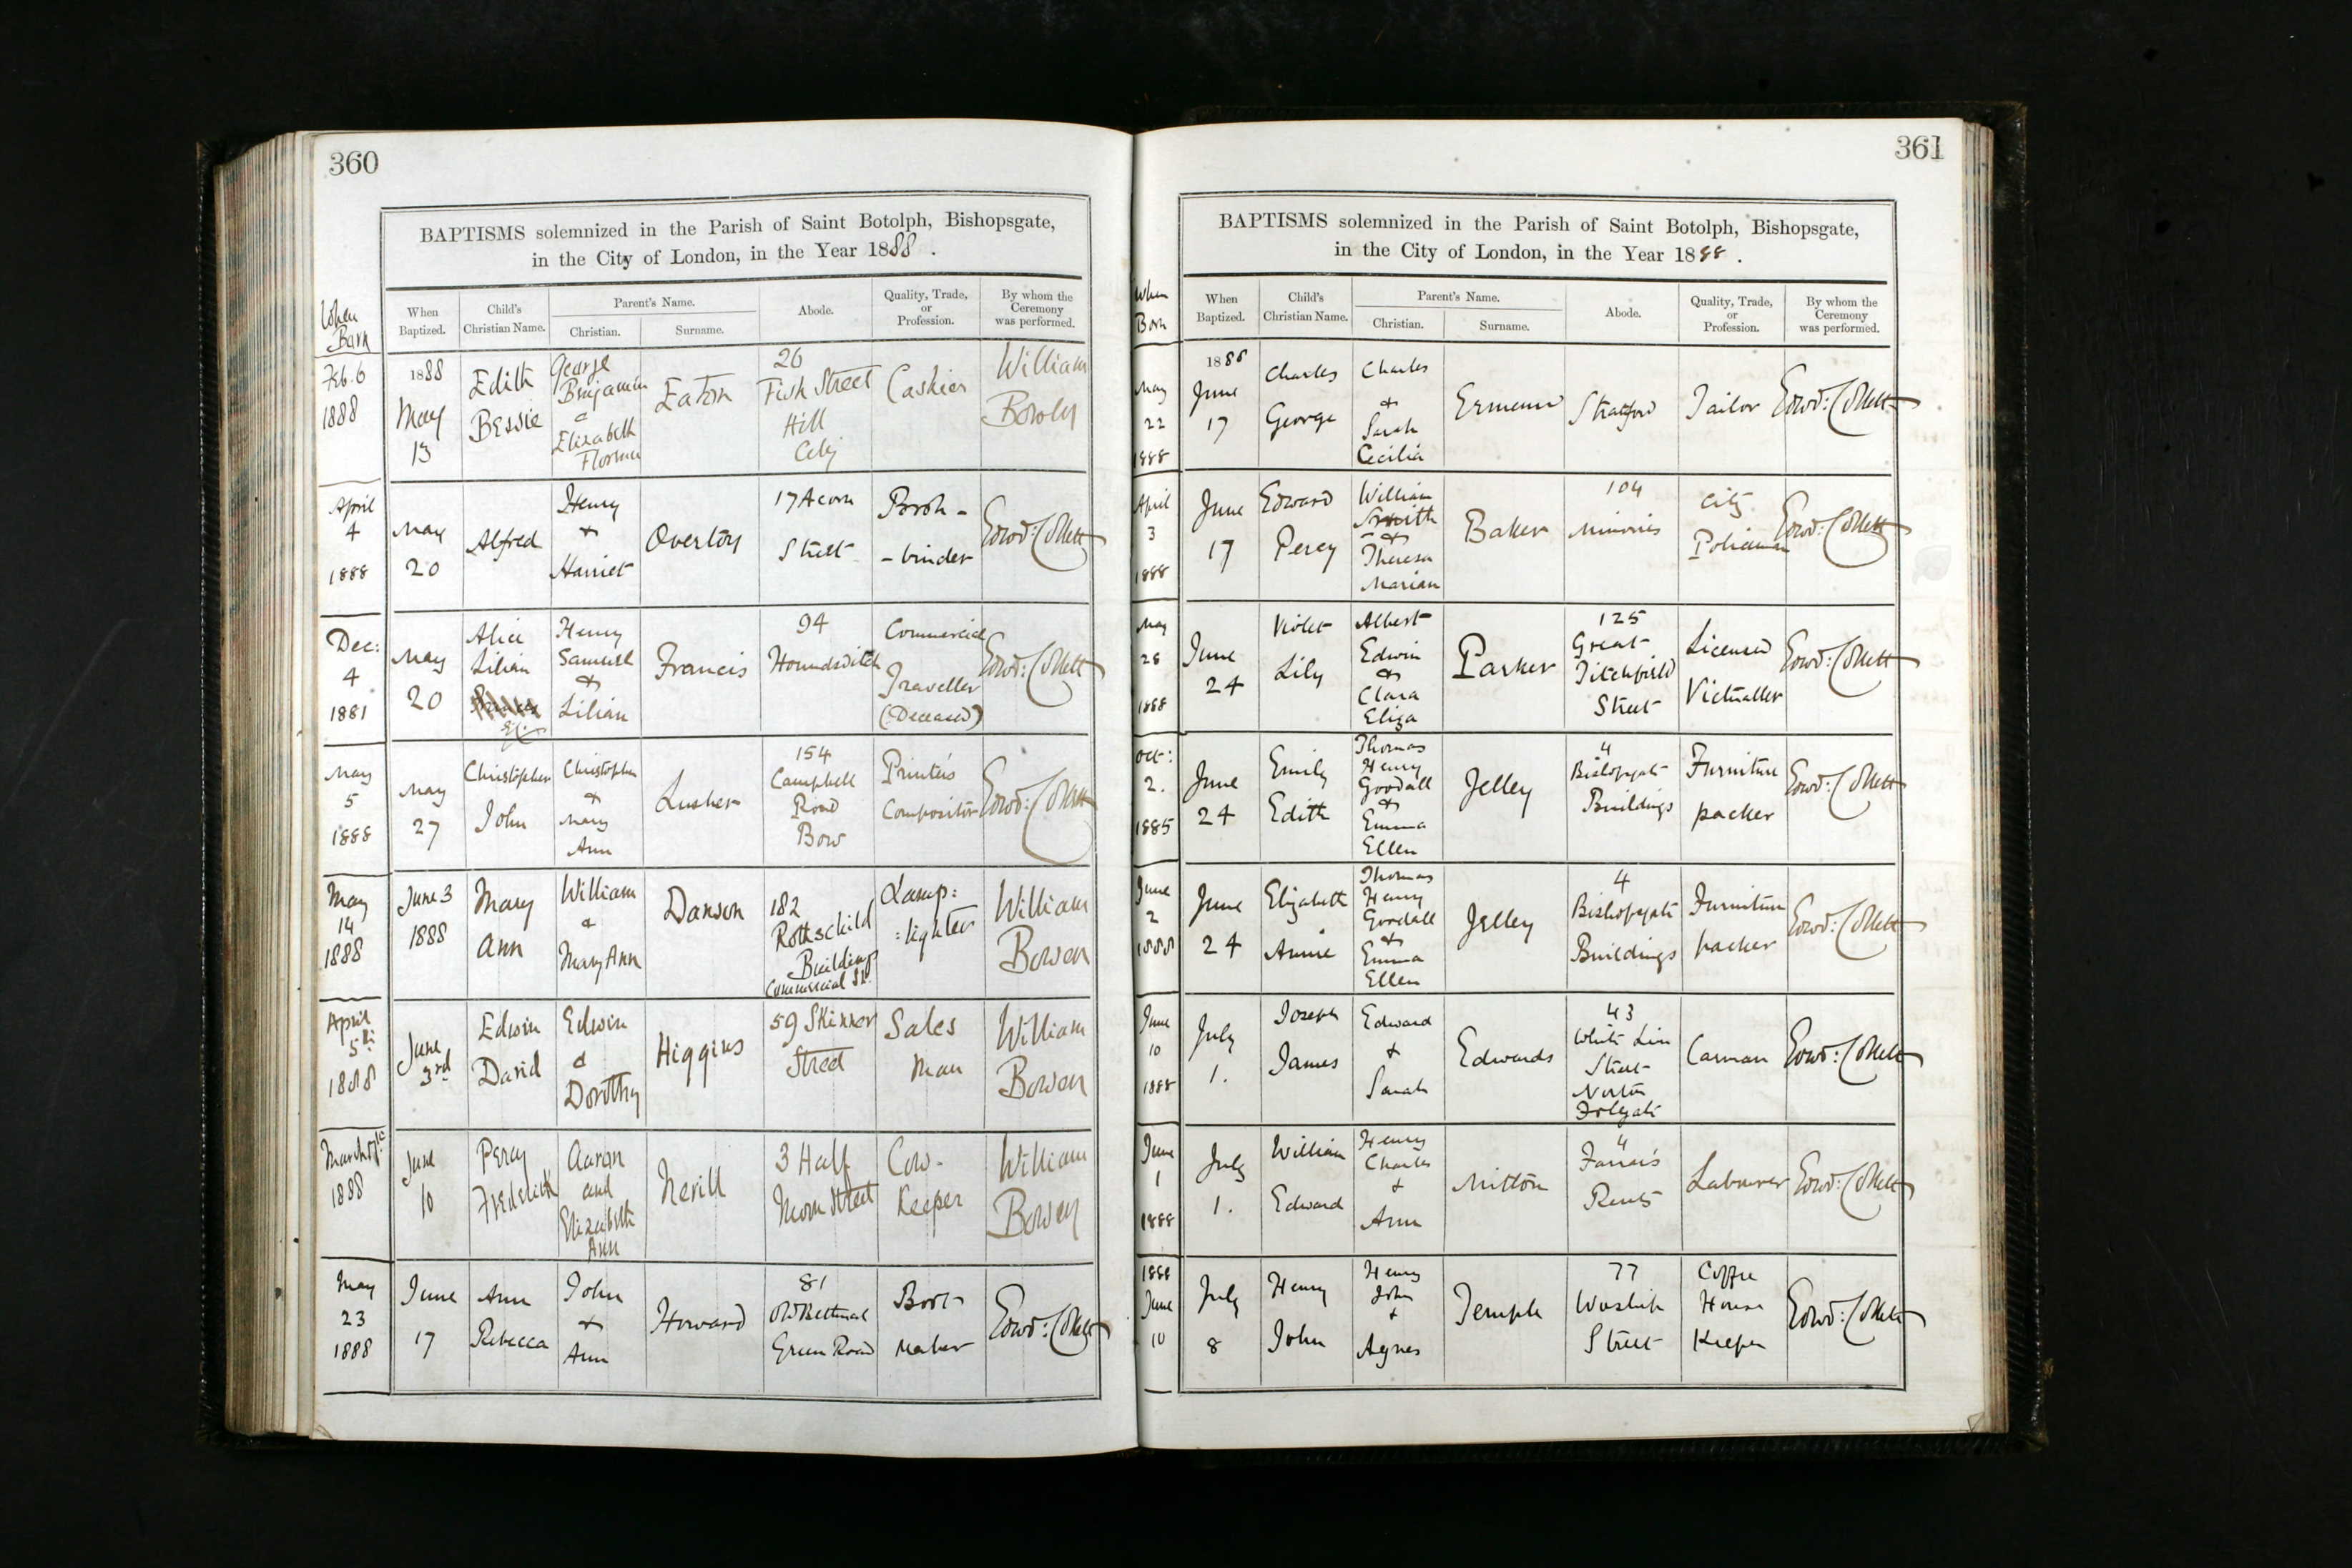 360
BAPTISMS solemnized in the Parish of Saint Botolph, Bishopsgate,
in the City of London, in the Year 1888.
When Born
When Baptized.
Child's Christian Name.
Parent's Name.
Christian.
Surname.
Abode.
Quality, Trade, or Profession.
By whom the Ceremony was performed.
Feb. 6 1888 1888 May 13 Edith Bessie George Benjamin & Elizabeth Florence Eaton 26 Fish Street Hill City Cashier William
April 4 1888 May 20 Alfred Henry + Harriet Overton 17 Acorn Street -binder Edwd: Collett
Dec: 4 1881 May 20 Alice Lilian Henry Samuel + Lilian Francis 94 Houndsditch Commercial Traveller (Deceased) Edwd: Collett
May 5 1888 May 27 Christopher John Christopher + Mary Ann Lusher 154 Campbell Road Bow Printer's Compositor Edwd: Collett
May 14 1888 June 3 1888 Mary Ann William & Mary Ann Danson 182 Rothschild Buildings Commercial St. Lamp: :lighter William Bowen
April 5th 1888 June 3rd Edwin David Edwin & Dorothy Higgins 59 Skinner Street Sales Man William Bowen
March 1888 June 10 Percy Frederick Aaron and Elizabeth Ann Nevill 3 Half Moon Street Cow- Keeper William Bowen
May 23 1888 June 17 Ann Rebecca John + Ann Howard 81 Old Bethnal Green Road Boot- maker Edwd: Collett
361
BAPTISMS solemnized in the Parish of Saint Botolph, Bishopsgate,
in the City of London, in the Year 1888.
When Born
When Baptized.
Child's Christian Name.
Parent's Name.
Christian.
Surname.
Abode.
Quality, Trade, or Profession.
By whom the Ceremony was performed.
May 22 1888 1888 June 17 Charles George Charles + Sarah Cecilia Stratford Tailor Edwd: Collett
April 3 1888 June 17 Edward Percy William Smith + Theresa Marian Baker 104 Minories City Policeman Edwd: Collett
May 28 1888 June 24 Violet Lily Albert Edwin + Clara Eliza Parker 125 Great Titchfield Street Licensed Victualler Edwd: Collett
Oct: 2. 1885 June 24 Emily Edith Thomas Henry Goodall + Emma Ellen Jelley 4 Bishopsgate Buildings Furniture packer Edwd: Collett
June 2 1888 June 24 Elizabeth Annie Thomas Henry Goodall + Emma Ellen Jelley 4 Bishopsgate Buildings Furniture packer Edwd: Collett
June 10 1888 July 1. Joseph James Edward + Sarah Edwards 43 White Lion Street Norton Folgate Carman Edwd: Collett
June 1 1888 July 1. William Edward Henry Charles + Ann Mitton 4 Rents Labourer Edwd: Collett
1888 June 10 July 8 Henry John Henry John + Agnes Temple 77 Worship Street Coffee House Keeper Edwd: Collett